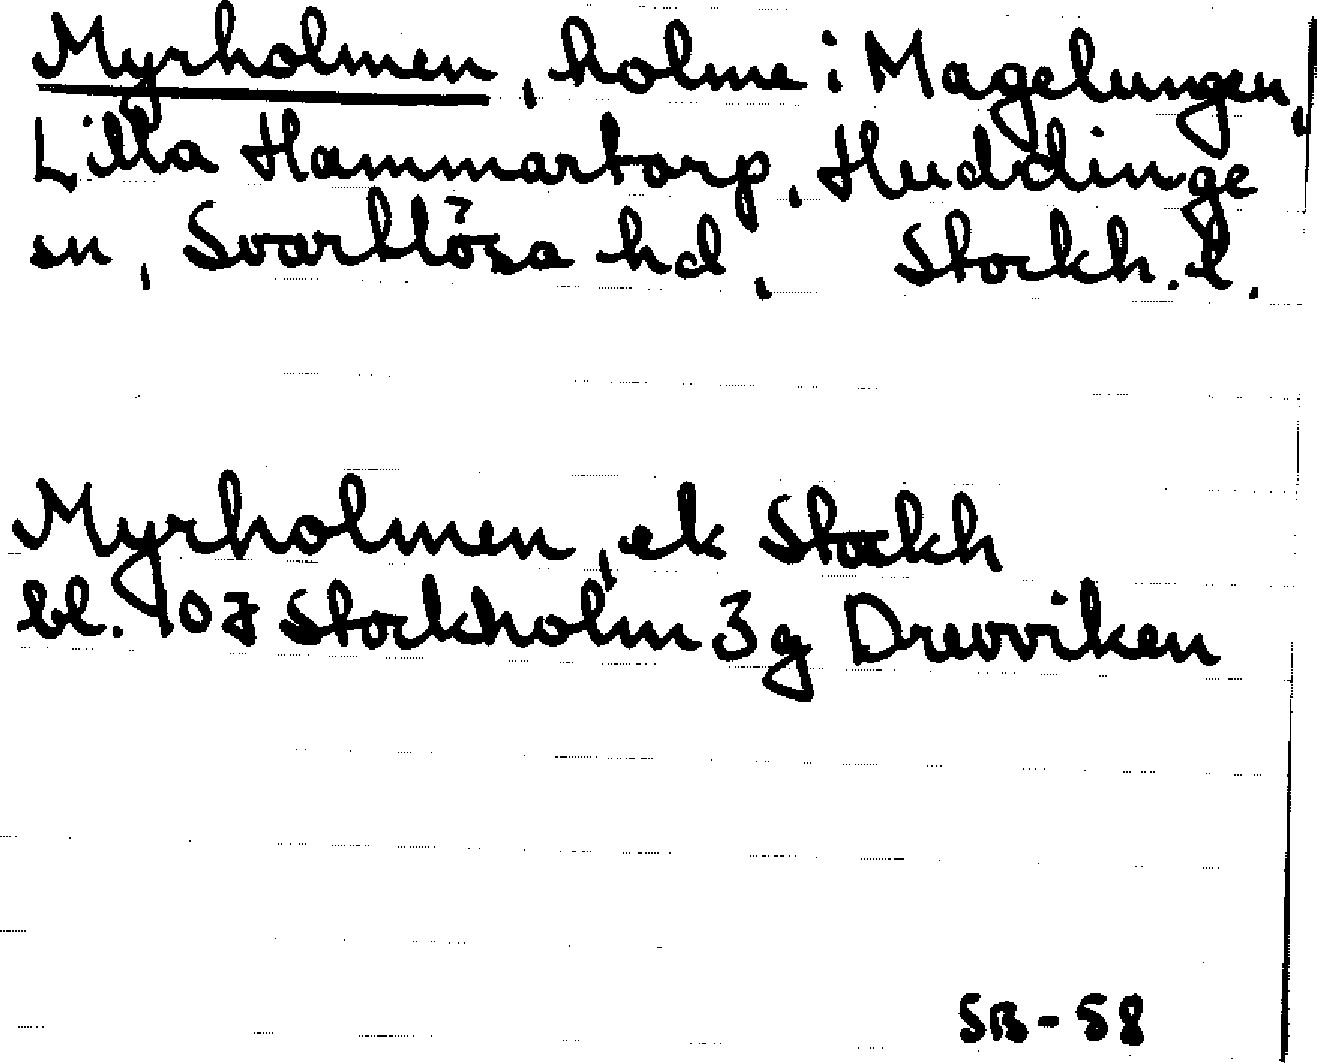 Myrholmen, holme i Magelungen,
Lilla Hammartorp, Huddinge
sn, Svartlösa hd, Stockh. l.
Myrholmen, ek Stockh
bl. 10J Stockholm 3g Drevviken
SB-58